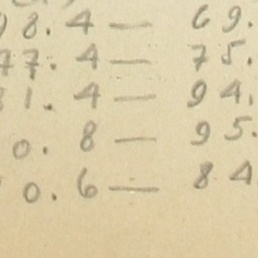 98.4 — 69.
77.4 — 75.
81.4 — 94.
0.8 — 95.
0.6 — 84